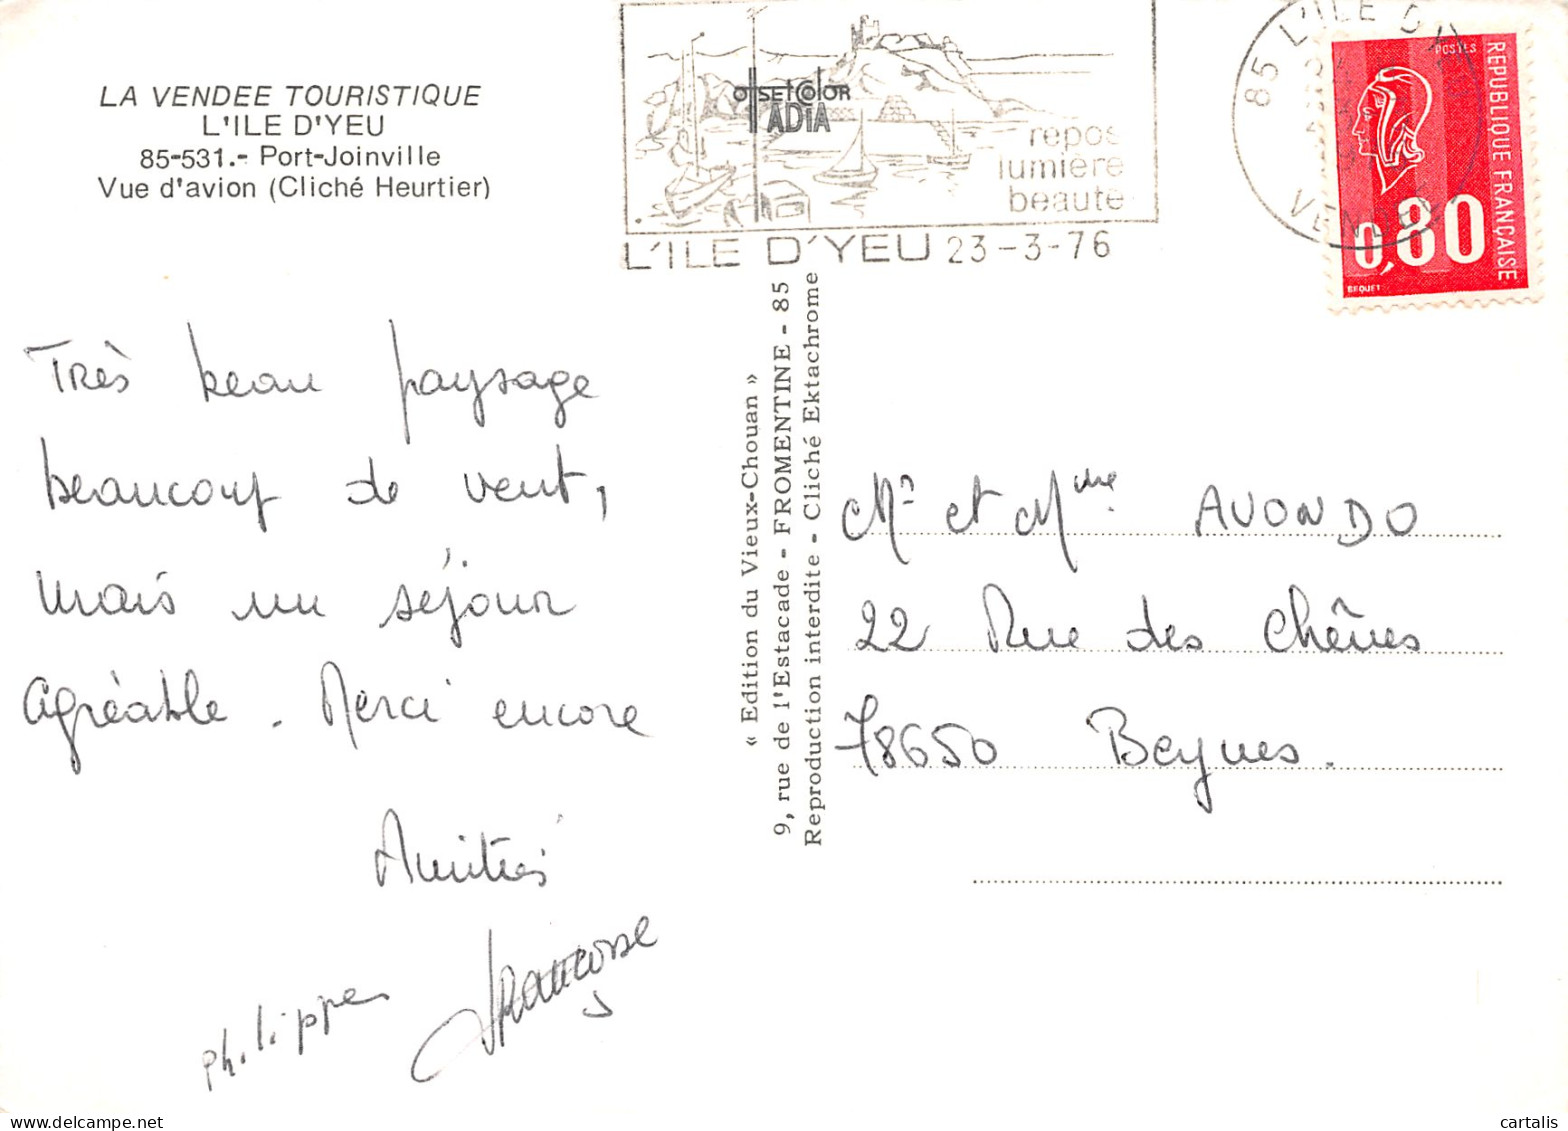 LA VENDEE TOURISTIQUE
L'ILE D'YEU
85-531.- Port-Joinville
Vue d'avion (Cliché Heurtier)
OffSETCOLOR
IADiA
repos
lumière
beauté
L'ILE D'YEU 23-3-76
85 L'ILE D'YEU
VENDEE
POSTES
REPUBLIQUE FRANÇAISE
0,80
BEQUET
Très beau paysage
beaucoup de vent,
mais un séjour
agréable. Merci encore
Amitiés
Philippe
Françoise
« Edition du Vieux-Chouan »
9, rue de l'Estacade - FROMENTINE - 85
Reproduction interdite - Cliché Ektachrome
Mr et Mme. AVONDO
22 Rue des Chênes
78650 Beynes.
cartalis